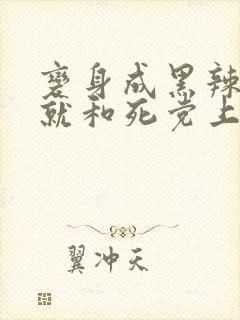 变身成黑辣
就和死党上
翼冲天